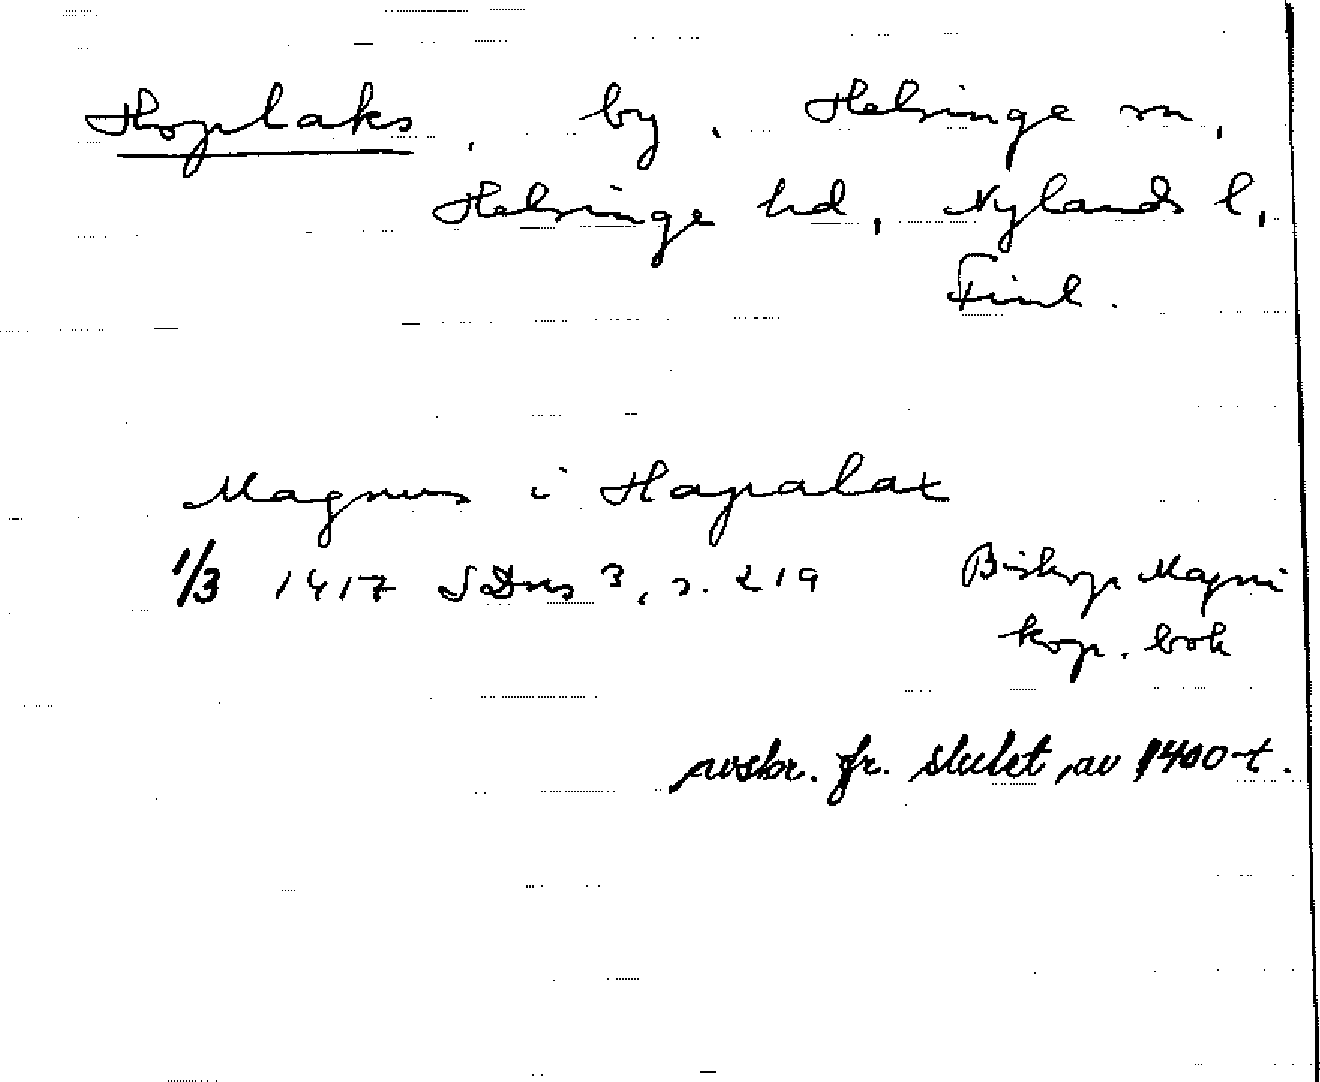 Hoplaks, by, Helsinge sn,
Helsinge hd, Nylands l,
Finl.
Magnus i Hapalax
1/3 1417 SDns 3, s. 219 Biskop Magni
kop. bok
avskr. fr. slutet av 1400-t.